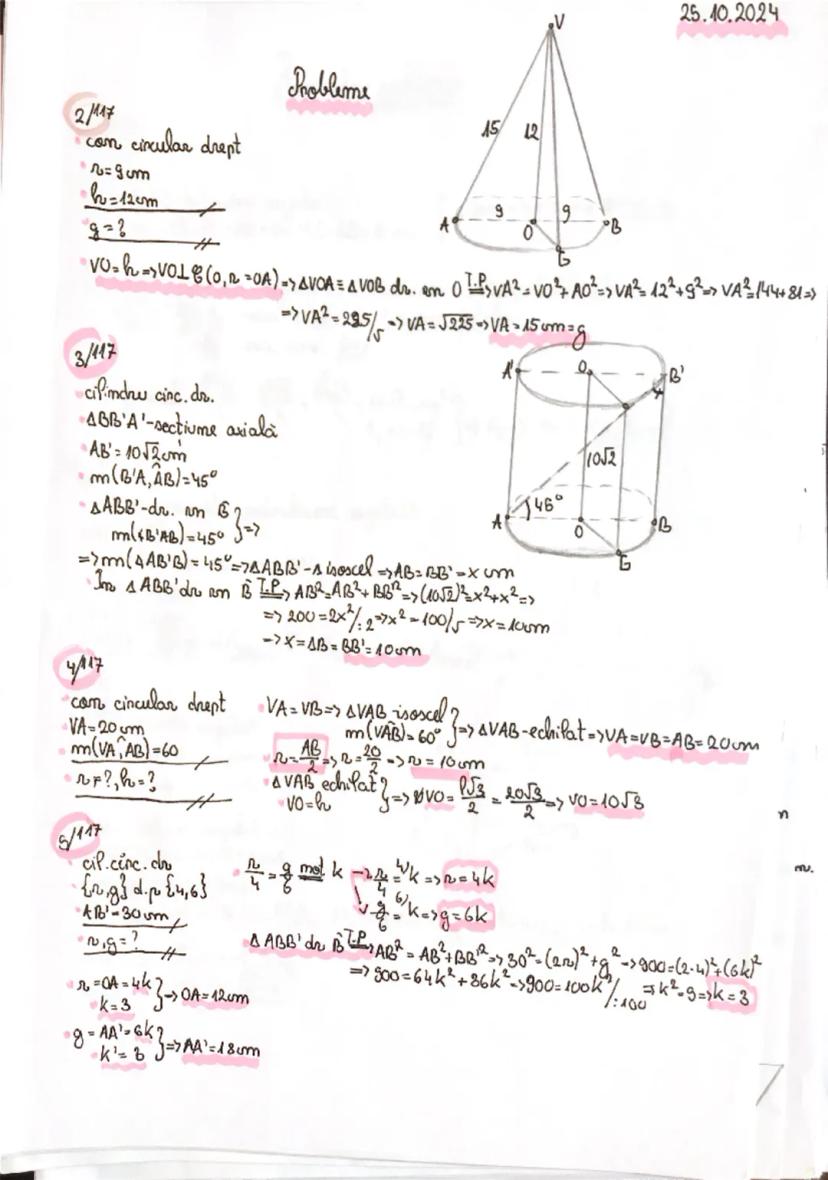 25.10.2024
Probleme
V
15
12
9
9
A
O
B
C
2/117
con circular drept
r=9cm
h=12cm
g=?
VO=h⇒VO⊥C(O,r=OA)⇒ΔVOA≡ΔVOB dr. în O T.P.⇒VA²=VO²+AO²⇒VA²=12²+9²⇒VA²=144+81⇒
⇒VA²=225/√⇒VA=√225⇒VA=15cm=g
3/117
cilindru circ.dr.
ΔBB'A'-secțiune axială
AB'=10√2cm
m(B'A,AB)=45°
ΔABB'-dr. în B
m(∢B'AB)=45° }⇒
⇒m(∢AB'B)=45°⇒ΔABB'-Δ isoscel⇒AB=BB'=x cm
În ΔABB' dr în B T.P.⇒AB²=AB²+BB'²⇒(10√2)²=x²+x²⇒
⇒200=2x²/:2⇒x²=100/√⇒x=10cm
⇒x=AB=BB'=10cm
A'
O
B'
10√2
45°
A
O
B
4/117
con circular drept
VA=20cm
m(VA,AB)=60
r=?,h=?
VA=VB⇒ΔVAB-isoscel
m(VAB)=60° }⇒ΔVAB-echilat⇒VA=VB=AB=20cm
r=AB/2⇒r=20/2⇒r=10cm
ΔVAB echilat
VO=h }⇒VO=l√3/2=20√3/2⇒VO=10√3
n
m.
5/117
cil.circ.dr
{r,g} d.p {4,6}
AB'=30cm
r,g=?
r/4=g/6 not k →r/4=k⇒r=4k
g/6=k⇒g=6k
ΔABB' dr B T.P.⇒AB²=AB²+BB'²⇒30²=(2r)²+g²⇒900=(2·4)²+(6k)²
⇒900=64k²+36k²⇒900=100k²/:100⇒k²=9⇒k=3
r=OA=4k
k=3 }⇒OA=12cm
g=AA'=6k
k'=3 }⇒AA'=18cm
7